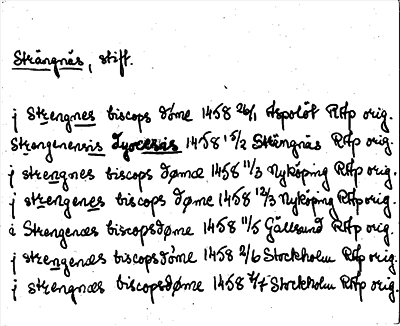 Strängnäs, stift.
j Strengnes biscops døme 1458 26/1 Aspolöt RAp orig.
Strengenensis dyocesis 1458 15/2 Strängnäs RAp orig.
j strengnes biscops dømæ 1458 11/3 Nyköping RAp orig.
j strengenes biscops dømæ 1458 12/3 Nyköping RAp orig.
i Strengenæs biscopsdøme 1458 11/5 Gällsund RAp orig.
j strengenæs biscopsdøme 1458 2/6 Stockholm RAp orig.
j strengnæs biscopsdøme 1458 /7 Stockholm RAp orig.